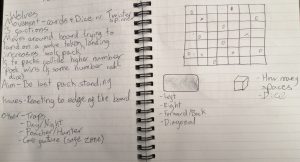 Wolves
Movement - cards & Dice
3 sections
Moves around board trying to
land on a wolf token, landing
increases wolf pack
If 2 packs collide higher number
pack wins (if same number roll
dice)
Aim - Be last pack standing
Issues - Reacting to edge of the board
Other - Traps
- Day/Night
- Poacher/Hunter
- Cave picture (safe zone)
- Left
- Right
- Forward/Back
- Diagonal
- How many
spaces
- Dice